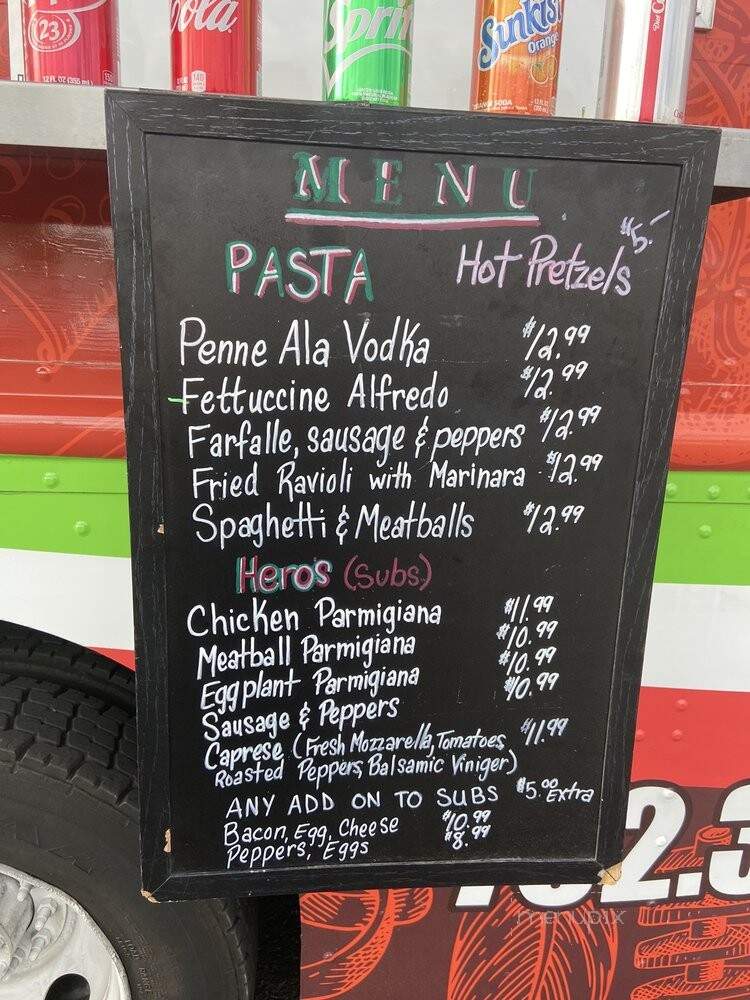 23
12 FL OZ (355 mL)
Cola
Sprit
Sunkist
Orange
ORANGE SODA
MENU
PASTA
Hot Pretzels $5.-
Penne Ala Vodka $12.99
Fettuccine Alfredo $12.99
Farfalle, sausage & peppers $12.99
Fried Ravioli with Marinara $12.99
Spaghetti & Meatballs $12.99
Heros (Subs)
Chicken Parmigiana $11.99
Meatball Parmigiana $10.99
Eggplant Parmigiana $10.99
Sausage & Peppers $10.99
Caprese (Fresh Mozzarella, Tomatoes, $11.99
Roasted Peppers, Balsamic Viniger)
ANY ADD ON TO SUBS $5.00 Extra
Bacon, Egg, Cheese $10.99
Peppers, Eggs $8.99
2.3
menupix